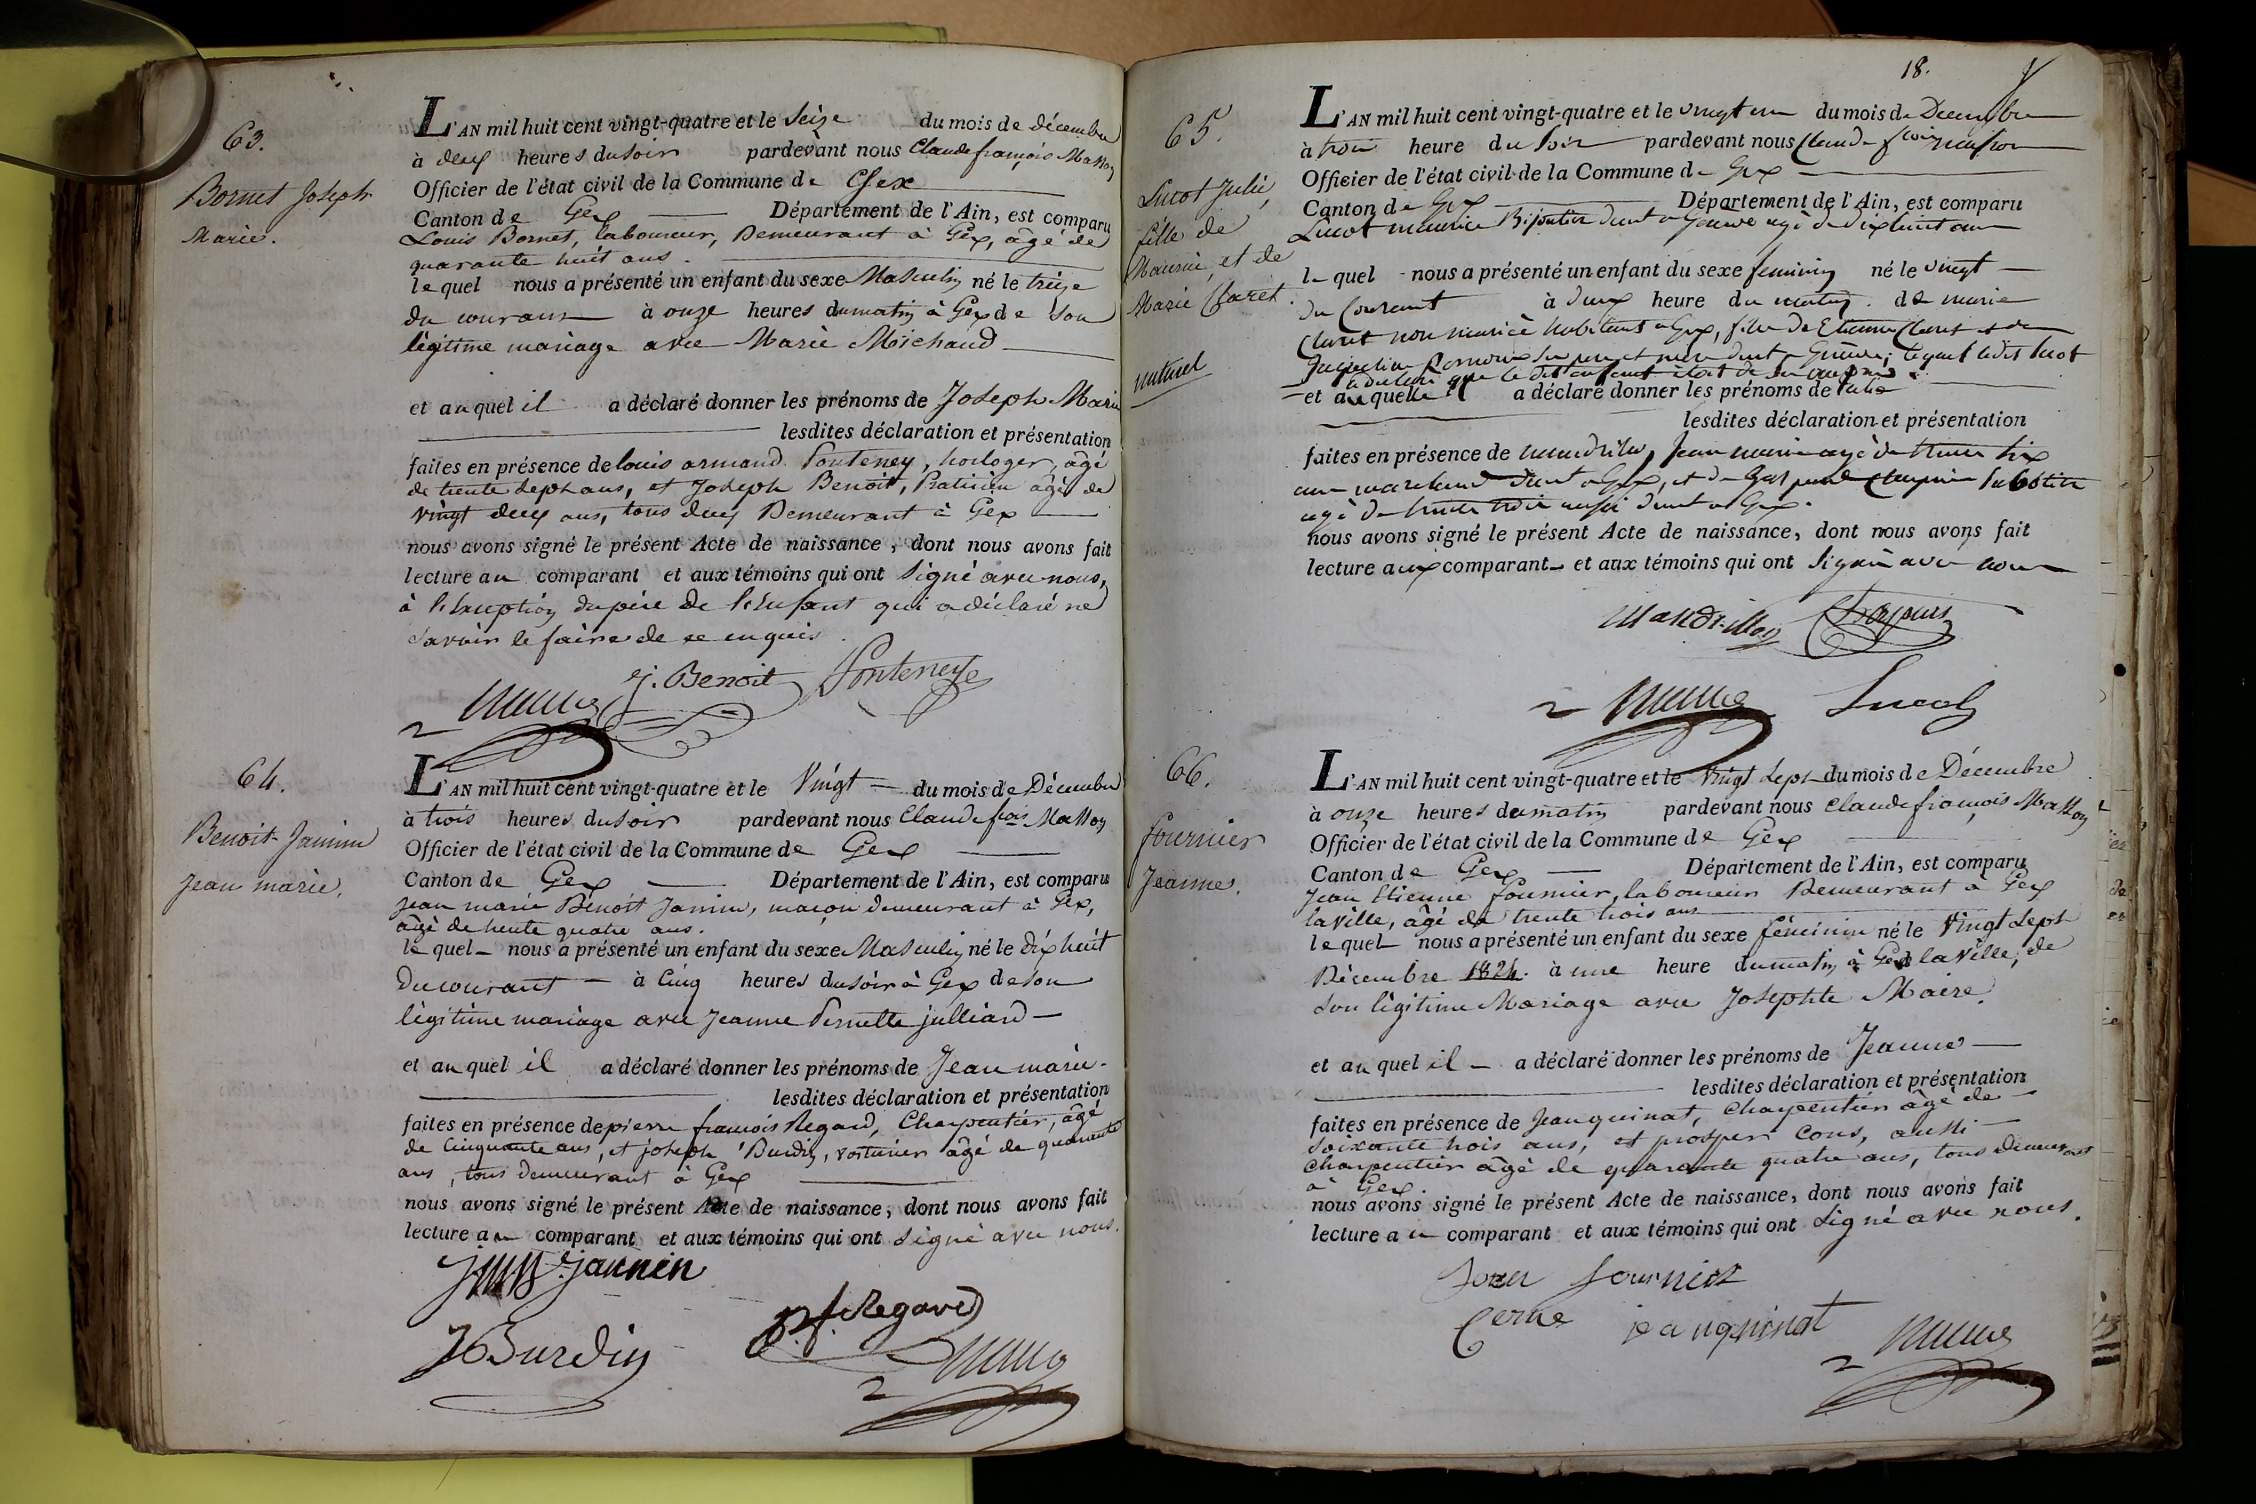 63.
Bornet Joseph
Marie.
L'AN mil huit cent vingt-quatre et le seize du mois de décembre
à deux heures du soir pardevant nous Claude françois Masson
Officier de l'état civil de la Commune de Gex
Canton de Gex Département de l'Ain, est comparu
Louis Bornet, laboureur, Demeurant à Gex, âgé de
quarante huit ans.
lequel nous a présenté un enfant du sexe Masculin né le treize
du courant à onze heures du matin à Gex de son
légitime mariage avec Marie Michaud
et auquel il a déclaré donner les prénoms de Joseph Marie
lesdites déclaration et présentation
faites en présence de louis armand Ponteney, horloger, âgé
de trente sept ans, et Joseph Benoit, Praticien âgé de
vingt deux ans, tous deux Demeurant à Gex
nous avons signé le présent Acte de naissance, dont nous avons fait
lecture au comparant et aux témoins qui ont signé avec nous,
à l'exception du père de l'enfant qui a déclaré ne
savoir le faire de ce enquis.
J. Benoit Ponteney
64.
Benoit-Janin
Jean marie.
L'AN mil huit cent vingt-quatre et le Vingt du mois de Décembre
à trois heures du soir pardevant nous Claude fois Masson
Officier de l'état civil de la Commune de Gex
Canton de Gex Département de l'Ain, est comparu
Jean marie Benoit Janin, maçon demeurant à Gex,
âgé de trente quatre ans.
lequel nous a présenté un enfant du sexe Masculin né le dix huit
du courant à cinq heures du soir à Gex de son
légitime mariage avec Jeanne Pernette julliard
et auquel il a déclaré donner les prénoms de Jean marie.
lesdites déclaration et présentation
faites en présence de pierre françois Regard, Charpentier, âgé
de cinquante ans, et joseph Burdin, voiturier âgé de quarante
ans, tous demeurant à Gex
nous avons signé le présent Acte de naissance, dont nous avons fait
lecture au comparant et aux témoins qui ont signé avec nous.
jannin
J Burdin p. f. Regard
18.
65.
Lucot Julie,
fille de
Maurice, et de
Marie Claret.
naturel
L'AN mil huit cent vingt-quatre et le vingt un du mois de Decembre
à trois heure du soir pardevant nous Claude fcois masson
Officier de l'état civil de la Commune de Gex
Canton de Gex Département de l'Ain, est comparu
Lucot maurice Bijoutier demt a Genève agé de dix huit ans
lequel nous a présenté un enfant du sexe feminin né le vingt
du Courant à deux heure du matin. de marie
Claret non mariée habitant a Gex, fille de Etienne Claret et de
Jacqueline ses pere et mere demt a Genève; lequel ledit lucot
a declaré que le dit enfant étoit de
et auquelle il a déclaré donner les prénoms de Julie
lesdites déclaration et présentation
faites en présence de mandrillon Jean marie agé de trente six
ans marchand demt a Gex, et de
agé de trente trois aussi demt a Gex.
nous avons signé le présent Acte de naissance, dont nous avons fait
lecture aux comparant et aux témoins qui ont signés avec nous
Mandrillon
Lucot
66.
fournier
Jeanne.
L'AN mil huit cent vingt-quatre et le vingt sept du mois de Décembre
à onze heures du matin pardevant nous Claude françois Masson
Officier de l'état civil de la Commune de Gex
Canton de Gex Département de l'Ain, est comparu
Jean Etienne fournier, laboureur Demeurant a Gex
la ville, âgé de trente trois ans
lequel nous a présenté un enfant du sexe féminin né le vingt sept
Décembre 1824. à une heure du matin à Gex la ville, de
son légitime Mariage avec Josephte Maire.
et auquel il a déclaré donner les prénoms de Jeanne
lesdites déclaration et présentation
faites en présence de Jean quinat, charpentier âgé de
soixante trois ans, et prosper Cons, aussi
charpentier âgé de quarante quatre ans, tous demeurant
à Gex.
nous avons signé le présent Acte de naissance, dont nous avons fait
lecture au comparant et aux témoins qui ont signé avec nous.
fournier
jeanquinat